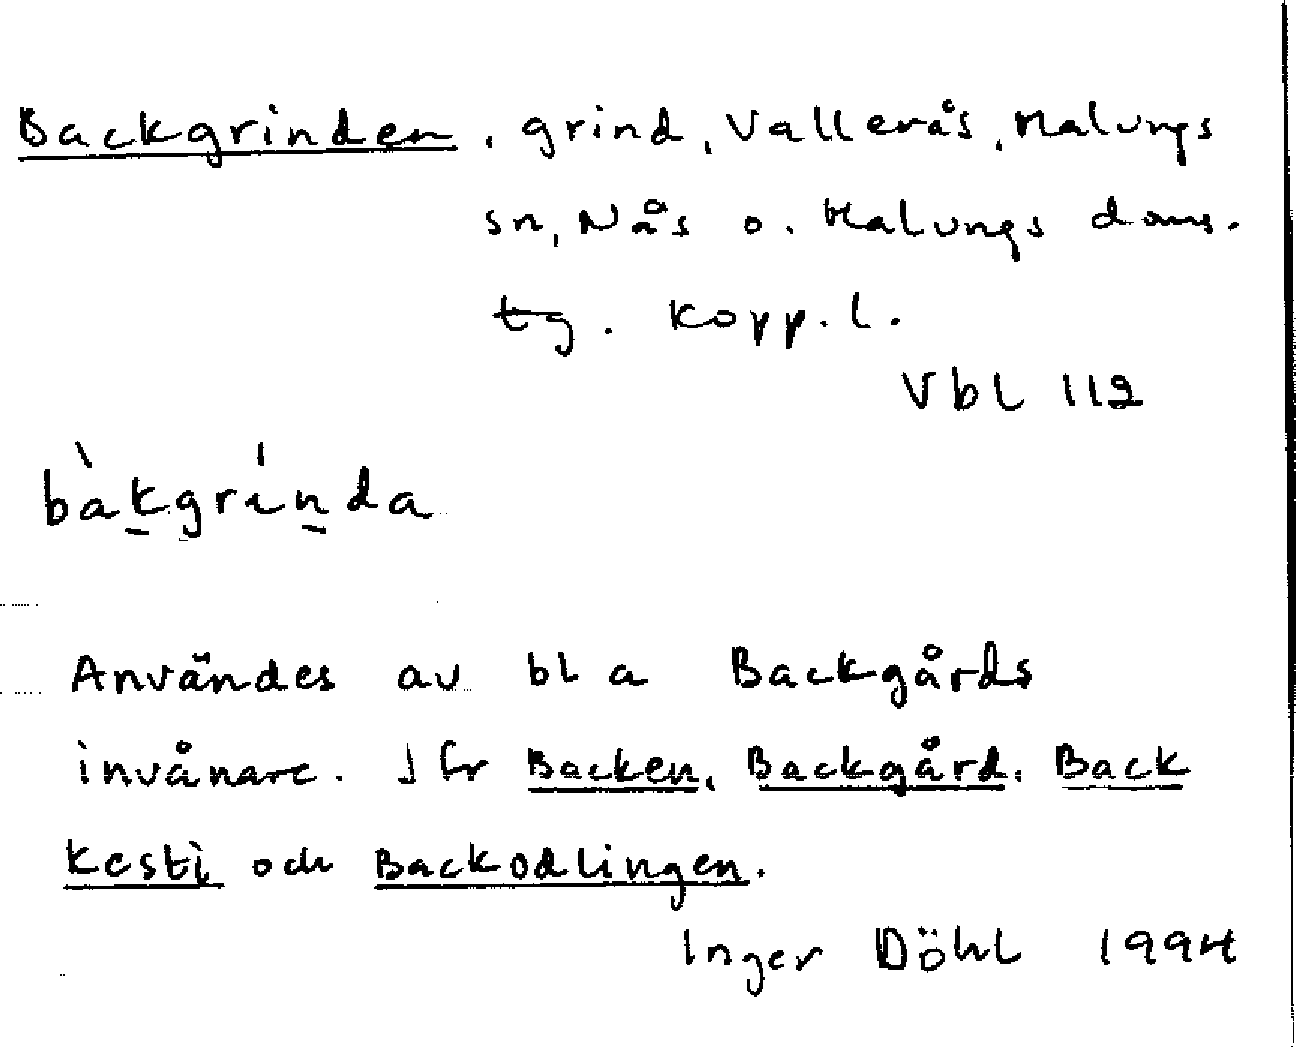 Backgrinden, grind, Vallerås, Malungs
sn, Nås o. Malungs doms.
tg. Kopp. l.
Vbl 112
bàkgrínda
Användes av bl a Backgårds
invånare. Jfr Backen, Backgård, Back
Kesti och Backodlingen.
Inger Döhl 1994